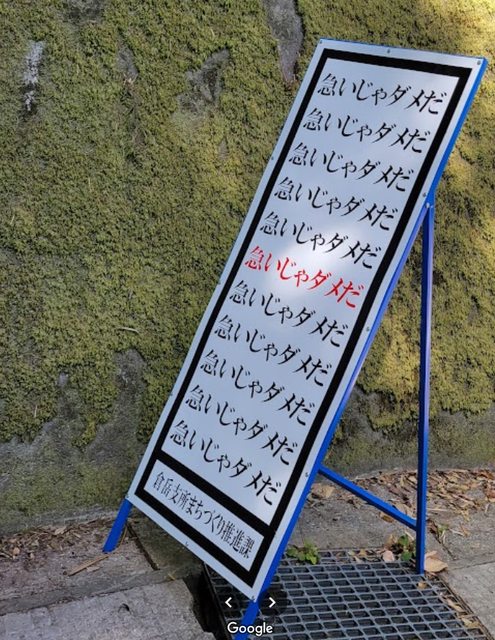 急いじゃダメだ
急いじゃダメだ
急いじゃダメだ
急いじゃダメだ
急いじゃダメだ
急いじゃダメだ
急いじゃダメだ
急いじゃダメだ
急いじゃダメだ
急いじゃダメだ
急いじゃダメだ
倉岳支所まちづくり推進課
Google